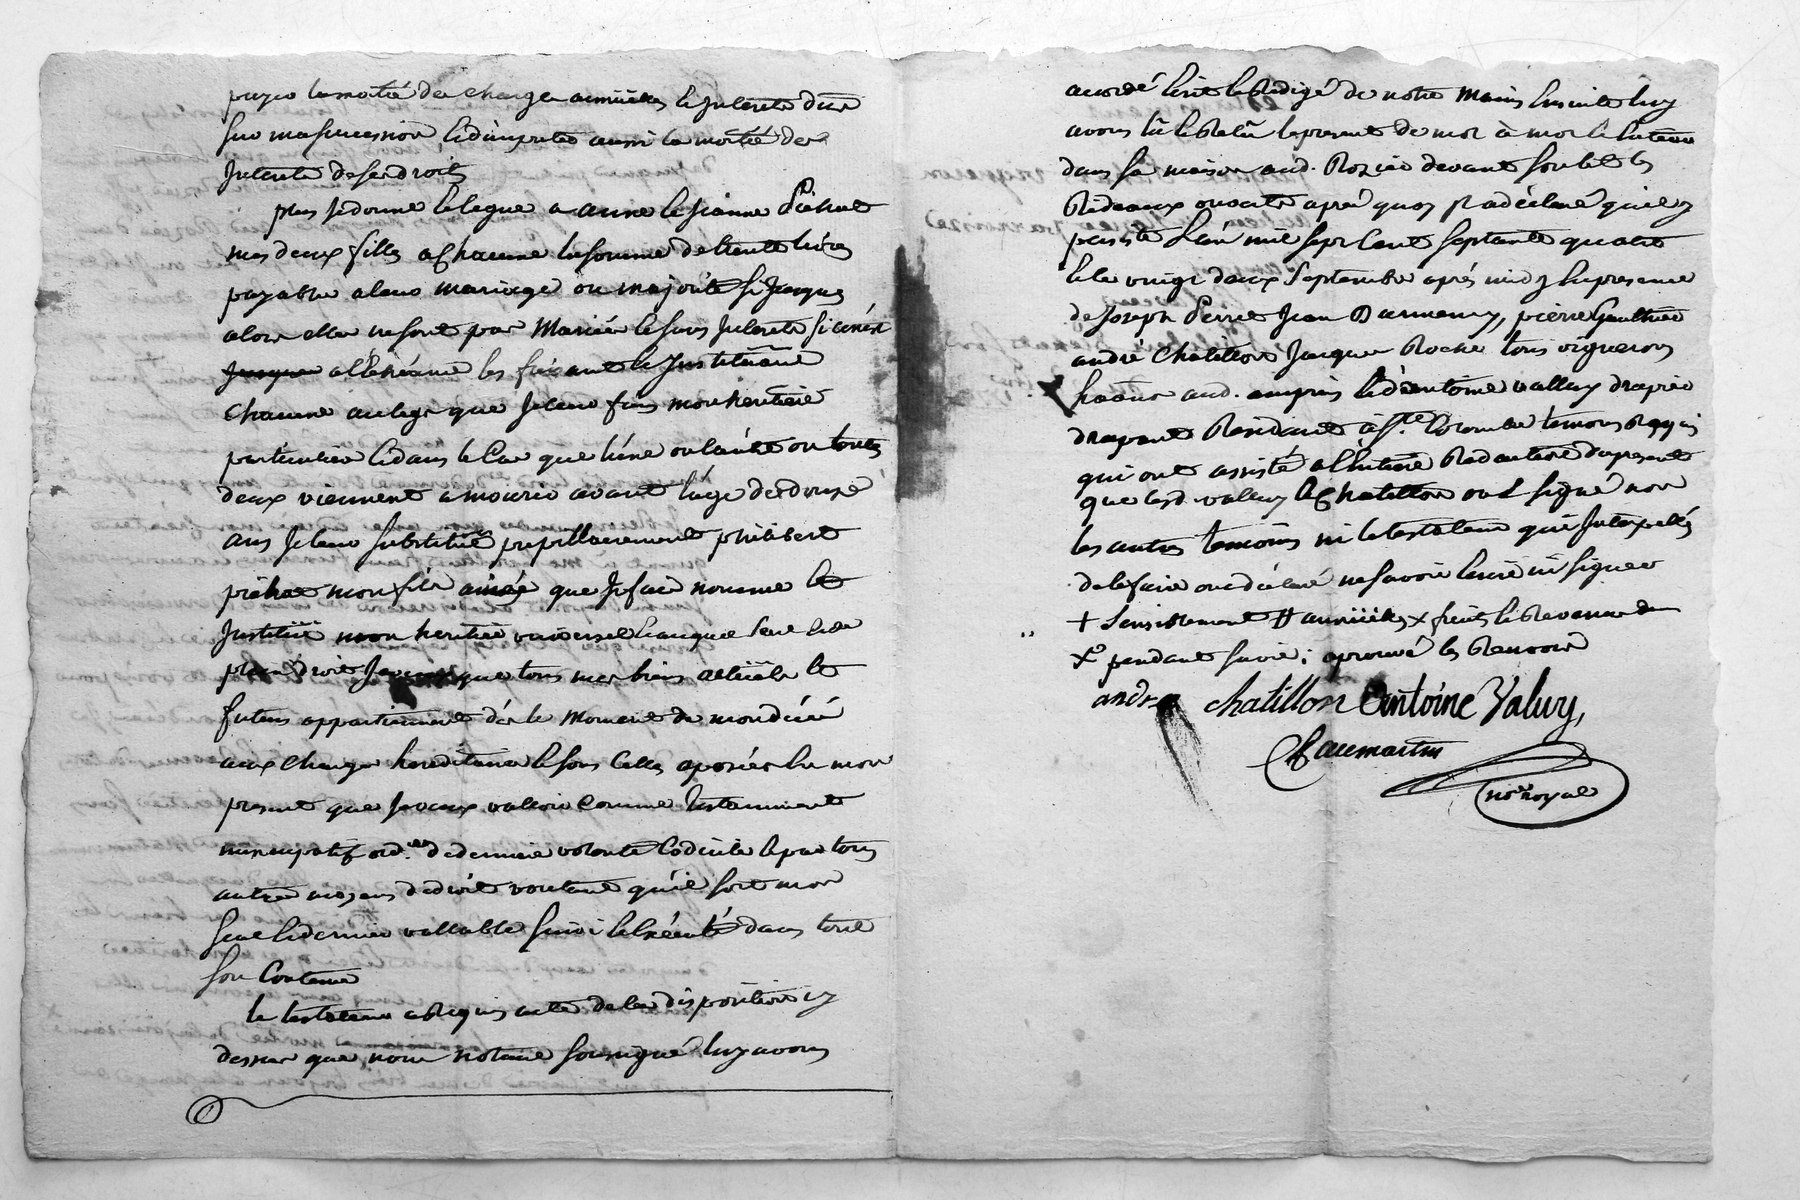 payer la moitié des charges annuilles et Interets dus
sur ma succession et d'imputer aussi la moitié des
Interets de ses droits
plus Je donne et legue a anne et Jeanne Pichat
mes deux filles a Chacune la somme de trente livres
payable a leur mariage ou majorité si Jusques
alors elles ne sont pas Mariées et sans Interets si ce n'est
Jusques a l'échéance les faisant et Instituant
Chacune au legs que Je leur fais mon heritiere
particuliere et dans le Cas que l'une ou l'autre ou toutes
deux viennent a mourir avant l'age de douze
ans Je leur substitüe pupillairement philibert
pichat mon fils ainée que Je fais nomme et
Institüe mon heritier universel et auquel seul et de
plein Droit Je veux que tous mes biens actüels et
futurs appartiennent dès le Moment de mon décès
aux Charges hereditaires et sous Celles aposées en mon
present que Je veux valloir Comme testamment
nuncupatif ord.re de derniere volonté Codicile et par tous
autres moyens de droit voulant qu'il soit mon
seul et dernier vallable suivi et exécuté dans tout
son Contenu
le testateur a Requis acte de les dispositions cy
dessus que nous notaire soussigné luy avons
accordé Ecrit et Redigé de notre Main Ensuite luy
avons lû et Relû le present de mot à mot le toutau
dans sa maison aud. Rozier devant son lit les
Rideaux ouverts aprés quoy Il a déclaré qu'il y
persiste L'an mil sept Cent septante quatre
et le vingt deux Septembre aprés midy En presence
de Joseph Perret Jean Darmeny, pierre Gaulthier
andré Chatillon Jacques Roche tous vignerons
h aud. ampuis et d'antoine valluy drapier
drapant Residant à S.te Colombe temoins Requis
qui ont assisté a l'Entiere Redaction du present
que lesd. valluy et Chatillon ont signé non
les autres temoins ni le testateur qui Interpellés
de le faire ont déclaré ne savoir Ecrire ni signer
+ sensiblement # annüelles x fruits et Revenus de
x° pendant sa vie; aprouvé les Renvois
andre chatillon Antoine Valuy,
not.re royal